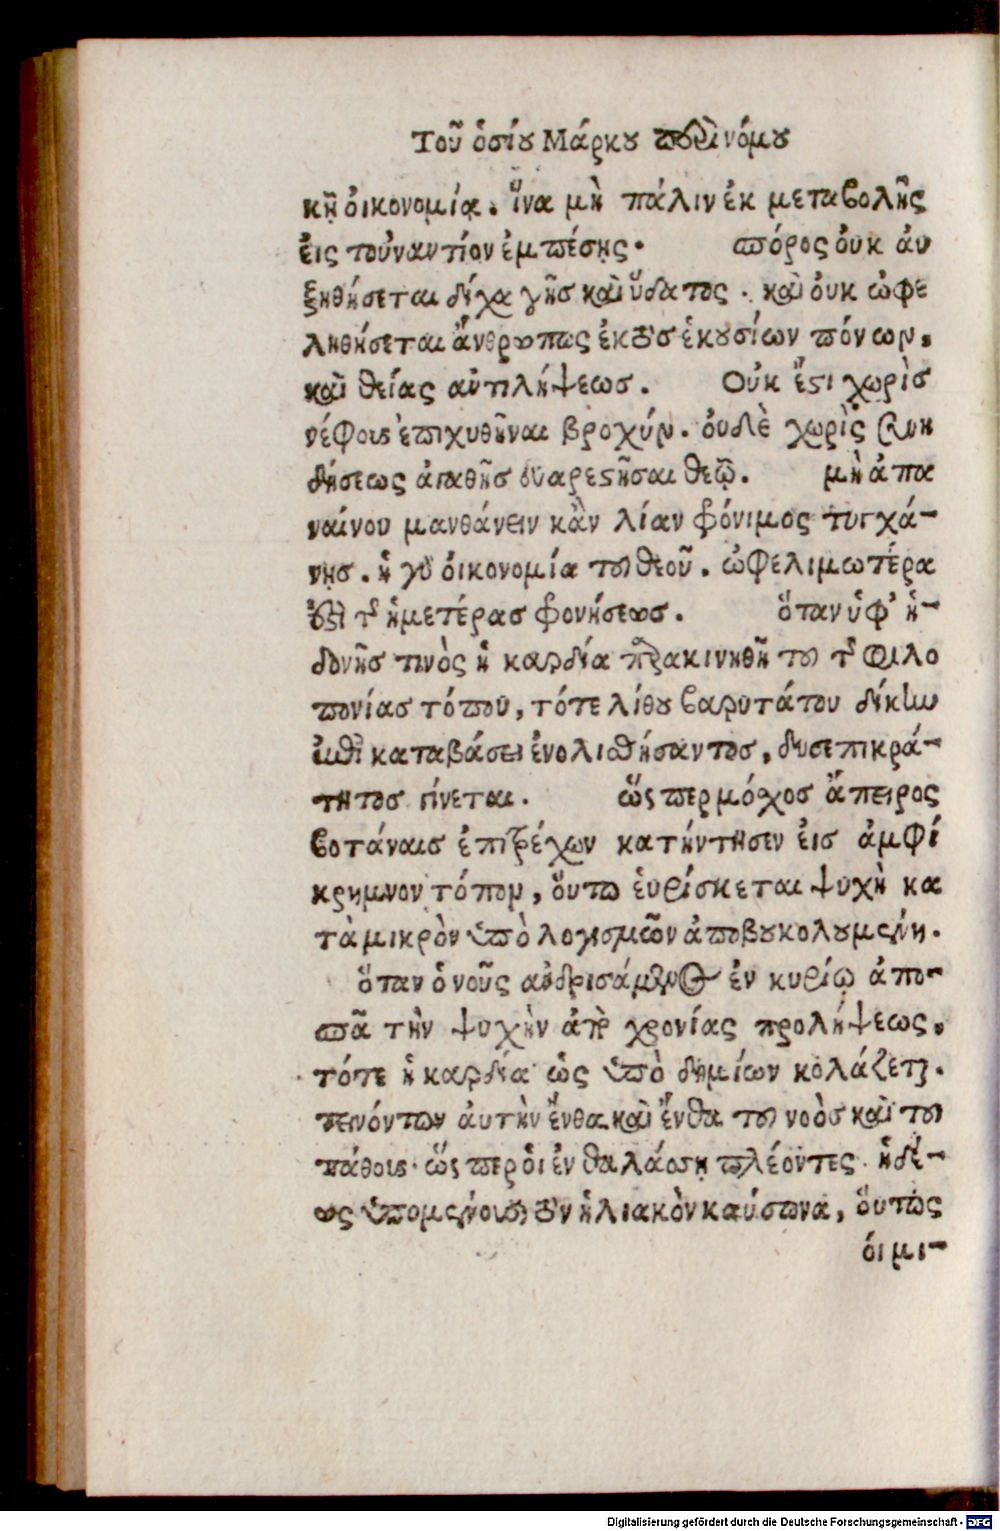 Τοῦ ὁσίου Μάρκου περὶ νόμου
κῇ οἰκονομίᾳ. ἵνα μὴ πάλιν ἐκ μεταβολῆς
εἰς τοὐναντίον ἐμπέσῃς. σπόρος οὐκ αὐ
ξηθήσεται δίχα γῆς καὶ ὕδατος. καὶ οὐκ ὠφε
ληθήσεται ἄνθρωπος ἐκτὸς ἑκουσίων πόνων,
καὶ θείας ἀντιλήψεως. Οὐκ ἔστι χωρὶς
νέφους ἐπιχυθῆναι βροχήν. οὐδὲ χωρὶς συνη
δήσεως ἀγαθῆς εὐαρεστῆσαι θεῷ. μὴ ἀπα
ναίνου μανθάνειν κἂν λίαν φρόνιμος τυγχά-
νῃς. ἡ γὰρ οἰκονομία τοῦ θεοῦ. ὠφελιμωτέρα
ἐστὶ τῆς ἡμετέρας φρονήσεως. ὅταν ὑφ' ἡ-
δονῆς τινὸς ἡ καρδία παρακινηθῇ τοῦ τῆς φιλο
πονίας τόπου, τότε λίθου βαρυτάτου δίκην
ἐπὶ καταβάσει ἐνολισθήσαντος, δυσεπικρά-
τητος γίνεται. ὥσπερ μόσχος ἄπειρος
βοτάναις ἐπιτρέχων κατήντησεν εἰς ἀμφί
κρημνον τόπον, οὕτω εὑρίσκεται ψυχὴ κα
τὰ μικρὸν ὑπὸ λογισμῶν ἀποβουκολουμένη.
ὅταν ὁ νοῦς ἀνδρισάμενος ἐν κυρίῳ ἀπο-
σπᾶ τὴν ψυχὴν ἀπὸ χρονίας προλήψεως,
τότε ἡ καρδία ὡς ὑπὸ δημίων κολάζεται.
τεινόντων αὐτὴν ἔνθα καὶ ἔνθα τοῦ νοὸς καὶ τοῦ
πάθους. ὥσπερ οἱ ἐν θαλάσσῃ πλέοντες. ἡδέ-
ως ὑπομένουσι τὸν ἡλιακὸν καύσωνα, οὕτως
οἱ μι-
Digitalisierung gefördert durch die Deutsche Forschungsgemeinschaft - DFG